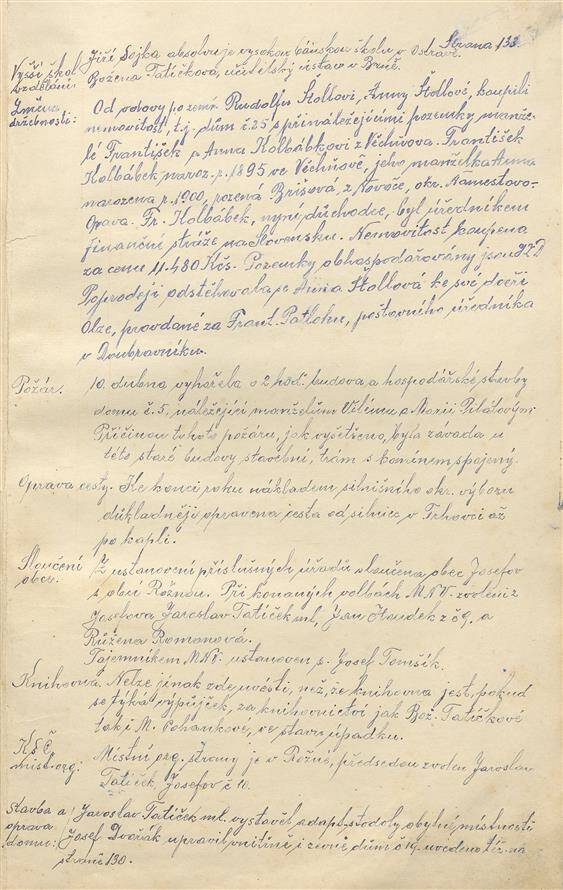 Strana 133
Vyšší škol. vzdělání: Jiří Sojka absolvuje vysokou báňskou školu v Ostravě.
Božena Tatíčkova, učitelský ústav v Brně.
Změna držebnosti: Od vdovy po zemř. Rudolfu Štollovi, Anny Štollové, koupili
nemovitost, t.j. dům č. 25 s přináležejícími pozemky manže-
lé František a Anna Kolbábkovi z Věchnova. František
Kolbábek naroz. r. 1895 ve Věchnově, jeho manželka Anna
narozena r. 1900, rozená Brišová, z Novoče, okr. Námestovo-
Orava. Fr. Kolbábek, nyní důchodce, byl úředníkem
finanční stráže na Slovensku. Nemovitost koupena
za cenu 11.480 Kčs. Pozemky obhospodařovány jsou JZD
Po prodeji odstěhovala se Anna Štollová ke své dceři
Olze, provdané za Frant. Patlohu, poštovního úředníka
v Doubravníku.
Požár. 10. dubna vyhořela o 2 hod. budova a hospodářské stavby
domu č. 5. náležející manželům Vilému a Marii Pilátovým
Příčinou tohoto požáru, jak vyšetřeno, byla závada u
této staré budovy stavební, trám s komínem spojený.
Oprava cesty. Ke konci roku nákladem silničního okr. výboru
důkladněji opravena cesta od silnice v Trhovci až
po kapli.
Sloučení obce. Z ustanovení příslušných úřadů sloučena obec Josefov
s obcí Rožnou. Při konaných volbách M.N.V. zvoleni z
Josefova Jaroslav Tatíček ml., Jan Haudek z č 9. a
Růžena Romanová.
Tajemníkem M.N.V. ustanoven s. Josef Tomšík.
Knihovna. Nelze jinak zde uvésti, než, že knihovna jest, pokud
se týká výpůjček, za knihovnictví jak Bož. Tatíčkové
tak i M. Pohankové, ve stavu úpadku.
K.S.Č. míst. org: Místní org. strany je v Rožné, předsedou zvolen Jaroslav
Tatíček, Josefov č 10.
Stavba a oprava domu: Jaroslav Tatíček ml. vystavěl adapt. stodoly obytné místnosti
Josef Dvořák upravil vnitřně i zevně dům č 19. uvedeno též na
straně 130.